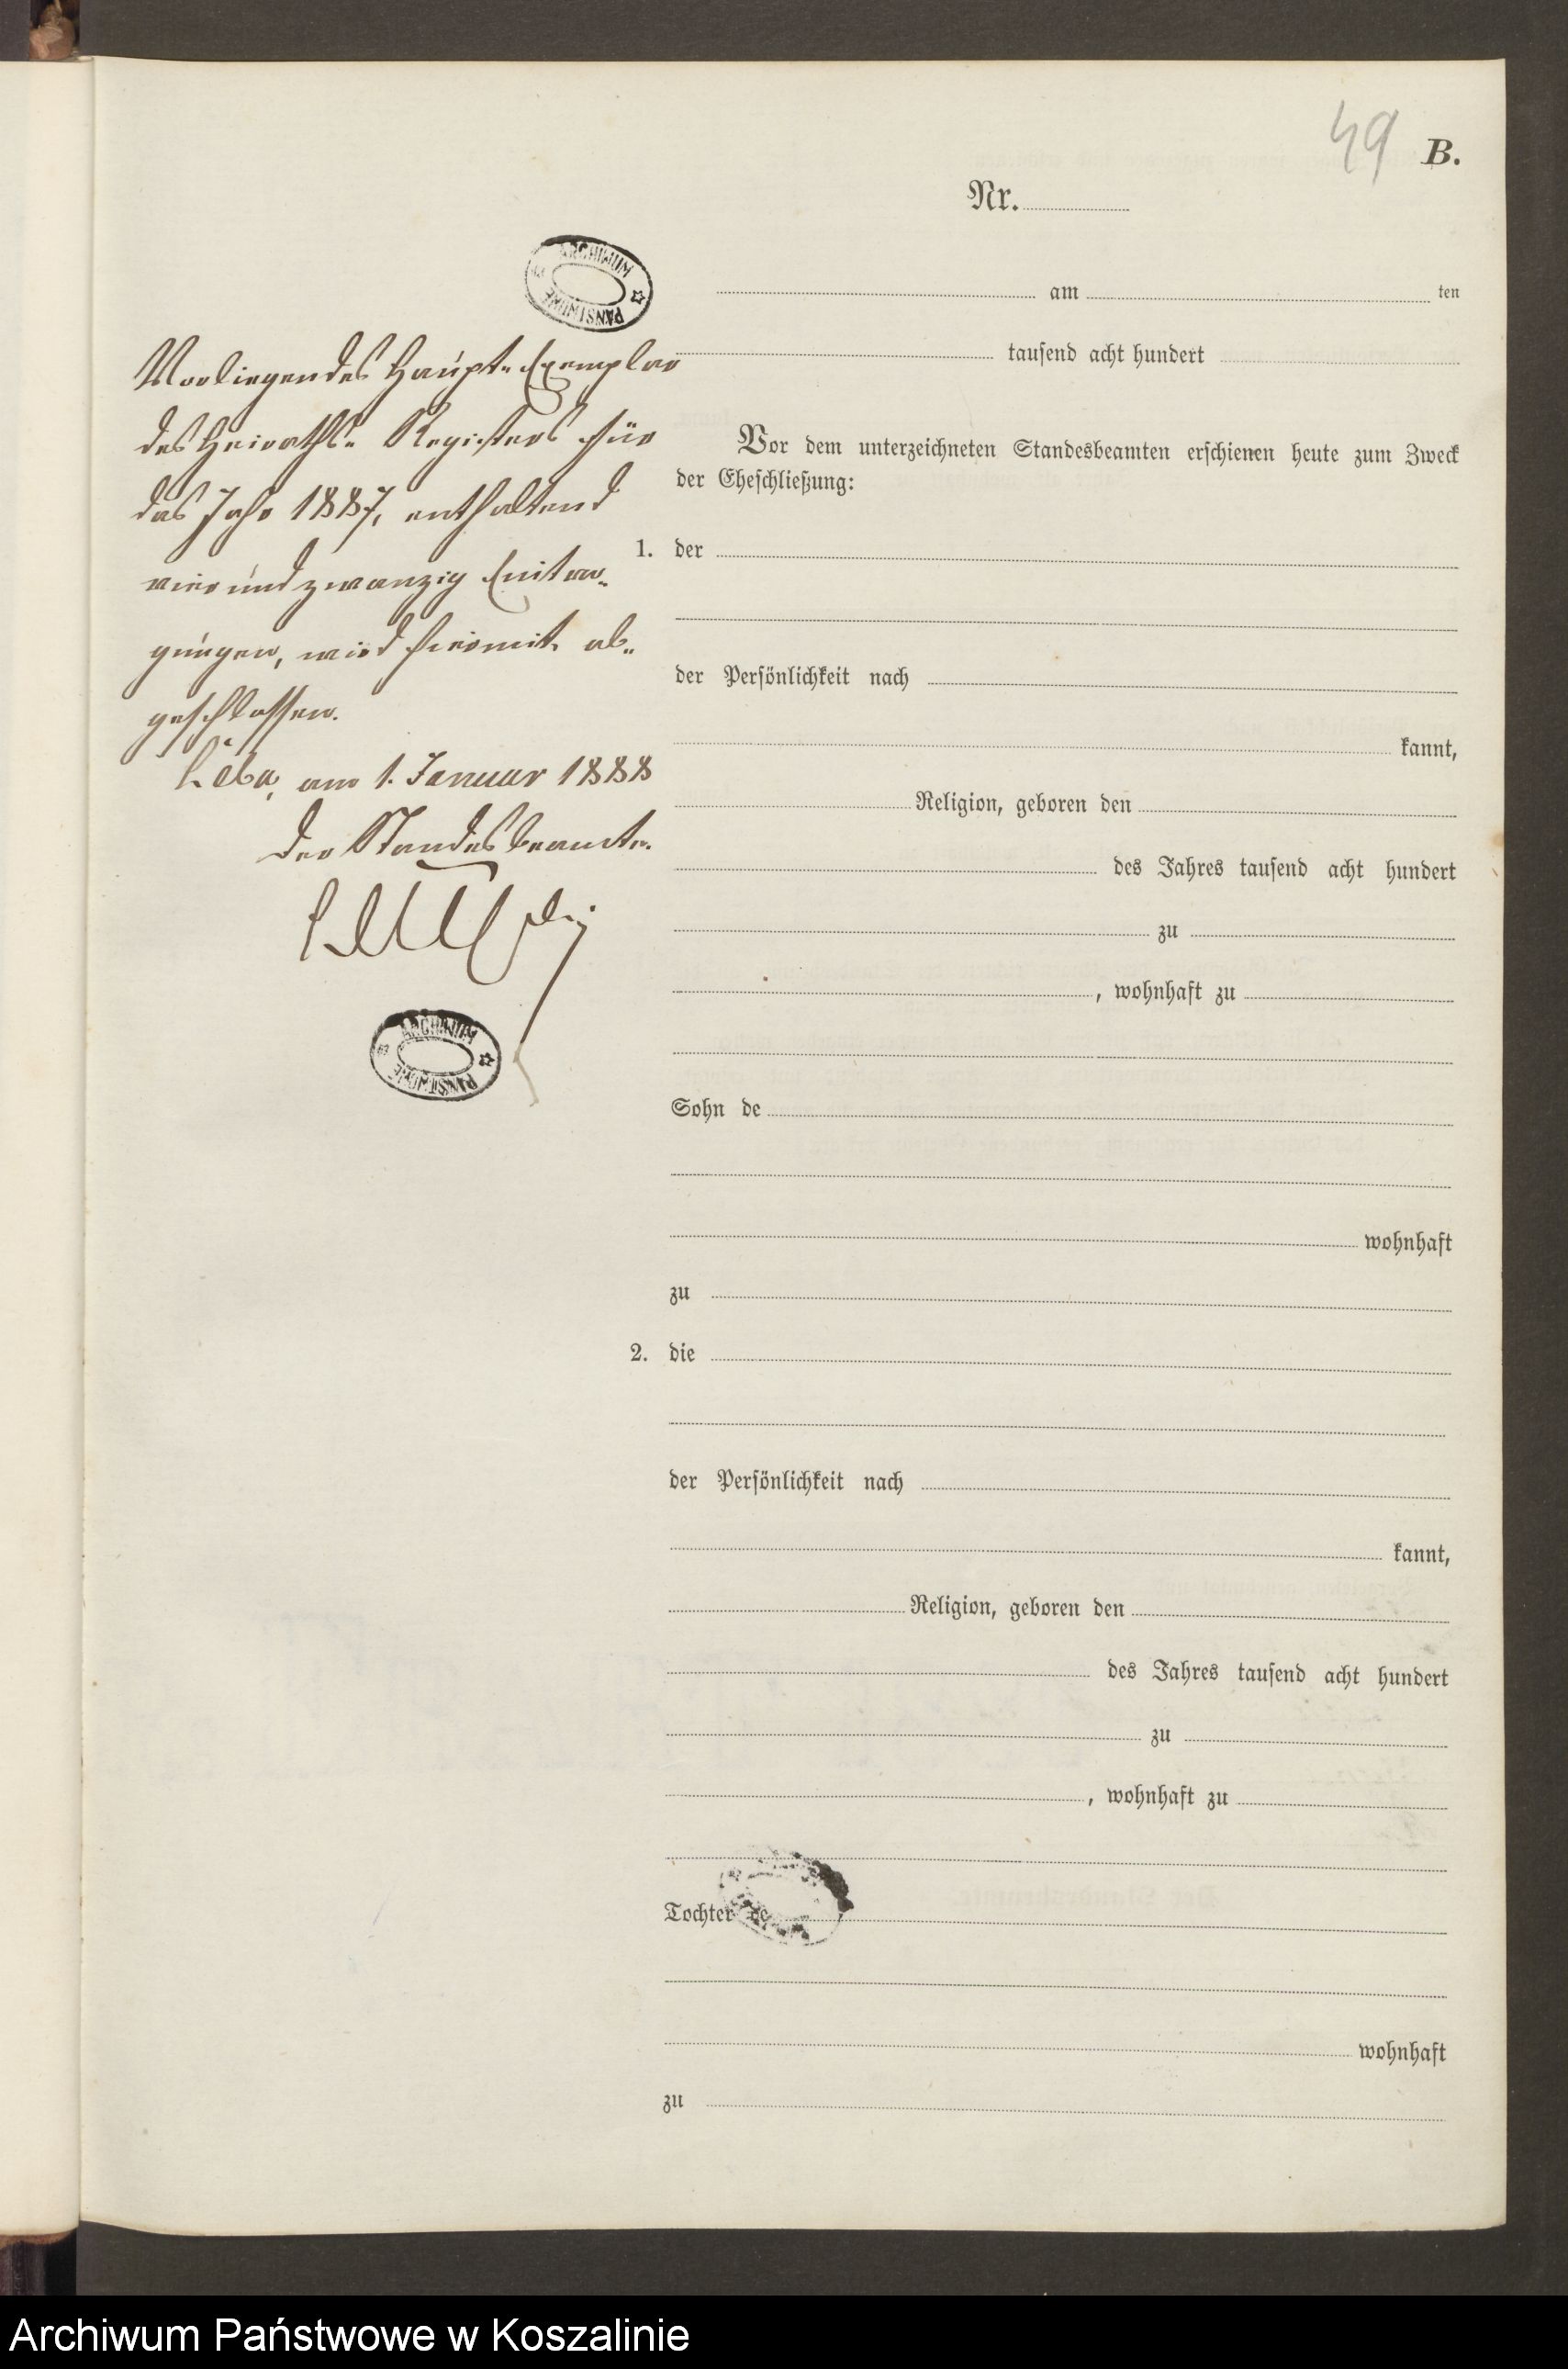 49
B.
Nr.
ARCHIWUM PAŃSTWOWE
am ten
tausend acht hundert
Vorliegendes Haupt-Exemplar
des Heiraths-Registers für
das Jahr 1887, enthaltend
vierundzwanzig Eintra-
gungen, wird hiermit ab-
geschlossen.
Leba, am 1. Januar 1888
Der Standesbeamte.
ARCHIWUM PAŃSTWOWE
Vor dem unterzeichneten Standesbeamten erschienen heute zum Zweck
der Eheschließung:
1. der
der Persönlichkeit nach
kannt,
Religion, geboren den
des Jahres tausend acht hundert
zu
, wohnhaft zu
Sohn de
wohnhaft
zu
2. die
der Persönlichkeit nach
kannt,
Religion, geboren den
des Jahres tausend acht hundert
zu
, wohnhaft zu
Tochter de
wohnhaft
zu
Archiwum Państwowe w Koszalinie